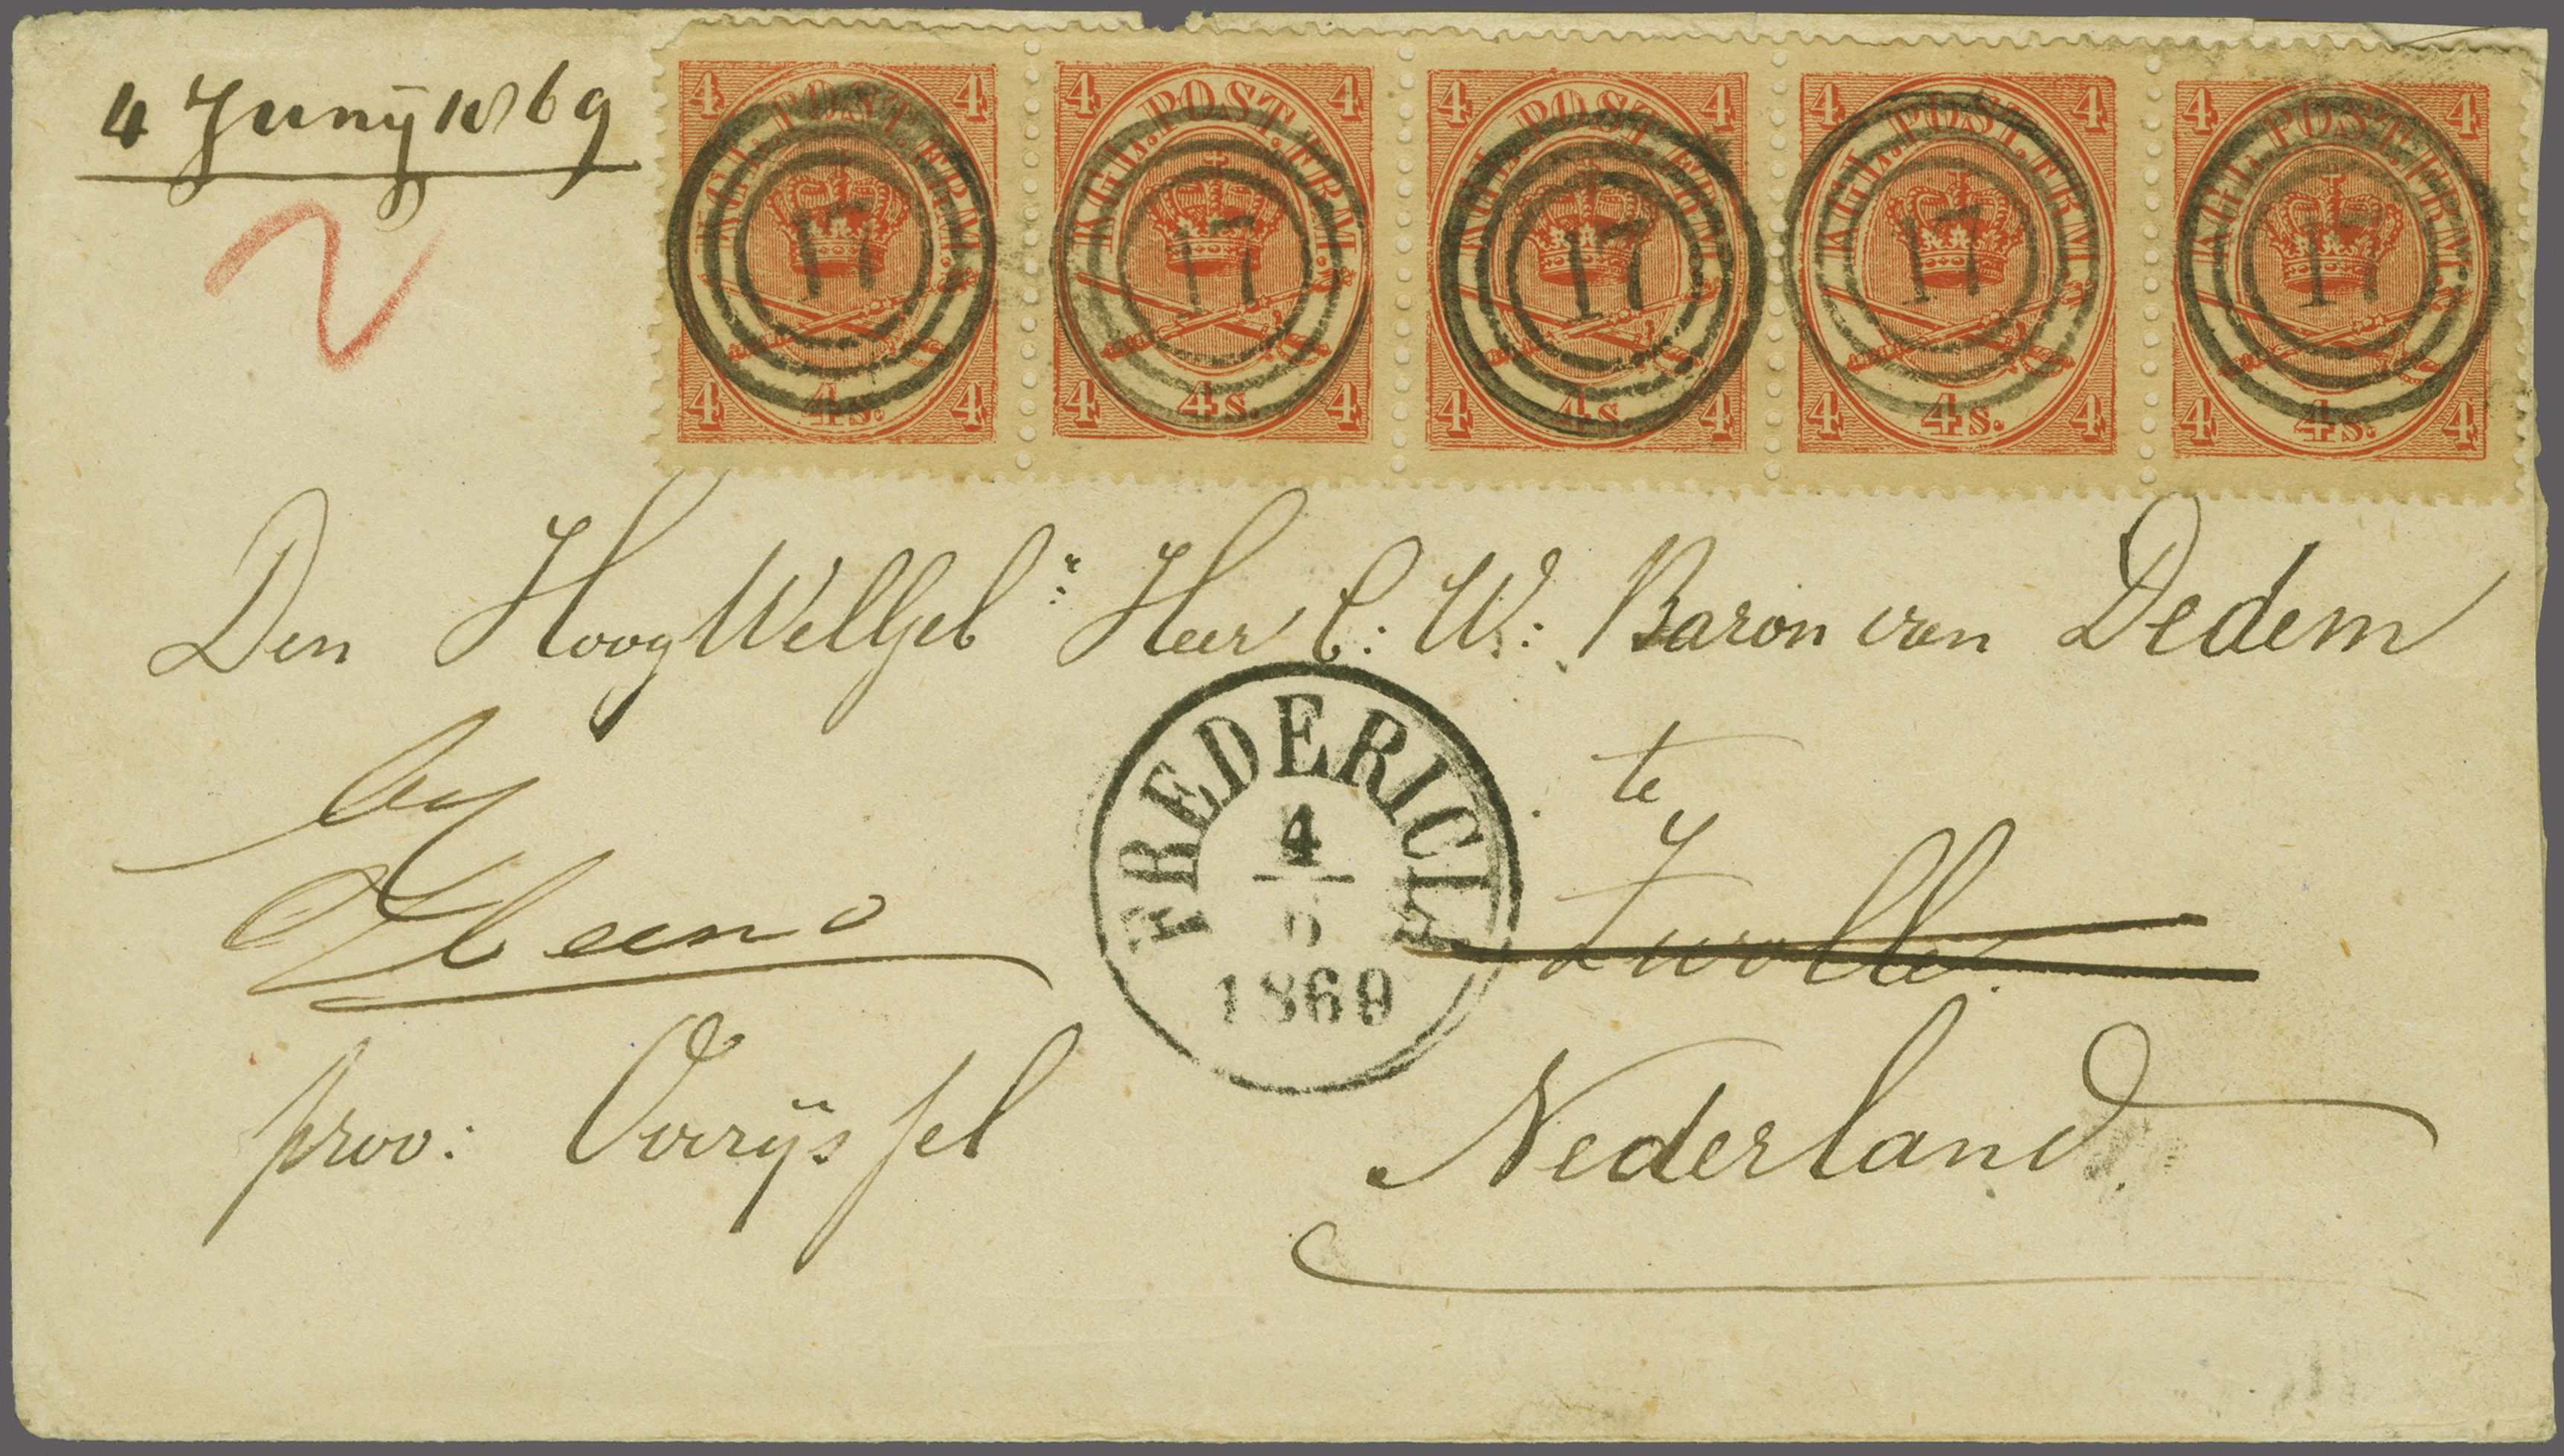 4 Junÿ 1869
2
4 4 KGL. POST. FRM. 17 4 4s. 4
4 4 KGL. POST. FRM. 17 4 4s. 4
4 4 KGL. POST. FRM. 17 4 4s. 4
4 4 KGL. POST. FRM. 17 4 4s. 4
4 4 KGL. POST. FRM. 17 4 4s. 4
Den HoogWelGeb Heer C: W: Baron van Dedem
te
by
Zwolle
Heeno
FREDERICIA
4
6
1869
prov: Overÿssel
Nederland.